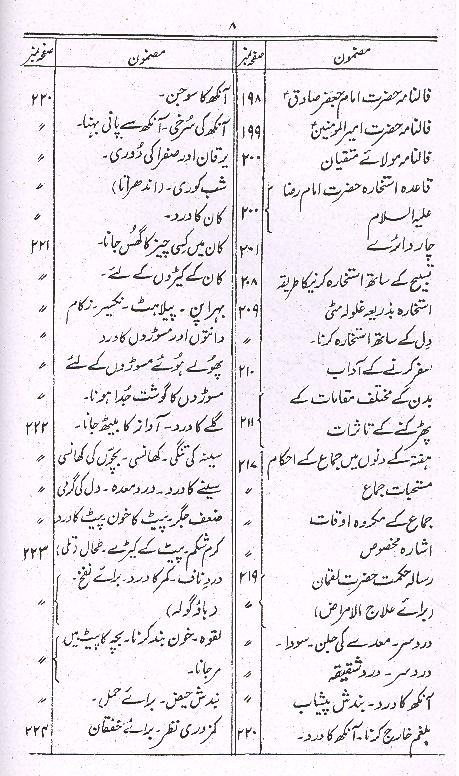 ۸
مضمون صفحہ نمبر
فالنامہ حضرت امام جعفر صادقؑ ۱۹۸
فالنامہ حضرت امیر المومنینؑ ۱۹۹
فالنامہ مولائے متقیان ۲۰۰
قاعدہ استخارہ حضرت امام رضا
علیہ السلام ۲۰۰
چار دائرے ۲۰۱
تسبیح کے ساتھ استخارہ کرنیکا طریقہ ۲۰۸
استخارہ بذریعہ غلولہ مٹی ۲۰۹
دل کے ساتھ استخارہ کرنا۔ 〃
سفر کرنے کے آداب ۲۱۰
بدن کے مختلف مقامات کے
پھڑکنے کے تاثرات ۲۱۱
ہفتہ کے دنوں میں جماع کے احکام ۲۱۷
مستحبات جماع 〃
جماع کے مکروہ اوقات 〃
اشارہ مخصوص 〃
رسالہ حکمت حضرت لقمان ۲۱۹
(برائے علاج الامراض) 〃
درد سر۔ معدے کی جلن۔ سودا۔ 〃
درد سر۔ درد شقیقہ 〃
آنکھ کا درد۔ بندش پیشاب 〃
بلغم خارج کرنا۔ آنکھ کا درد۔ ۲۲۰
مضمون صفحہ نمبر
آنکھ کا سوجن۔ ۲۲۰
آنکھ کی سرخی۔ آنکھ سے پانی بہنا۔ 〃
یرقان اور صفرا کی دوری۔ 〃
شب کوری۔ (اندھراتا) 〃
کان کا درد۔ 〃
کان میں کسی چیز کا گھس جانا۔ ۲۲۱
کان کے کیڑوں کے لئے۔ 〃
بہرا پن۔ پیلاہٹ۔ نکسیر۔ زکام 〃
دانتوں اور مسوڑوں کا درد 〃
پھولے ہوئے مسوڑوں کے لئے 〃
مسوڑوں کا گوشت جدا ہونا۔ 〃
گلے کا درد۔ آواز کا بیٹھ جانا۔ ۲۲۲
سینہ کی تنگی۔ کھانسی۔ بچوں کی کھانسی 〃
سینے کا درد۔ درد معدہ۔ دل کی گرمی 〃
ضعف جگر۔ پیٹ کا خون پیٹ کا درد 〃
کرم شکم۔ پیٹ کے کیڑے۔ طحال (تلی) ۲۲۳
درد ناف۔ کمر کا درد۔ برائے نفخ۔
(باؤ گولہ) 〃
لقوہ۔ خون بند کرنا۔ بچہ کا پیٹ میں
مرجانا۔ 〃
بندش حیض۔ برائے حمل۔ 〃
کمزوری نظر۔ برائے خفقان ۲۲۴